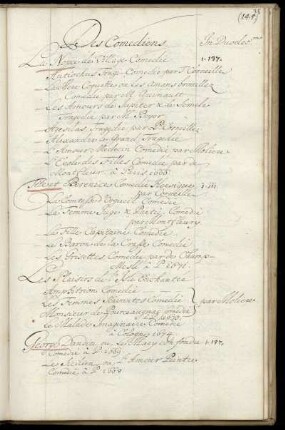 Des Comediens
In Duodec
La Noce de Village Comedie
Antiochus Tragi-Comedie par T. Corneille
La Mere Coquette ou les Amans brouillez
Comedie par Mr Quinault
Les Amours de Jupiter & de Semele
Tragedie par Mr Boyer
Agesilas Tragedie par P. Corneille
Alexandre le Grand Tragedie
L'Amour Medecin Comedie par Moliere
L'Ecole des Filles Comedie par de
Montfleury à Paris 1666
Berenice Comedie Heroique
par Corneille
Le Comte d'Orgueil Comedie
La Femme Juge & Partie Comedie
par Montfleury
La Fille Capitaine Comedie
Le Baron de la Crasse Comedie
Les Grisettes Comedie par de Champ-
meslé à P. 1671
Les Plaisirs de l'Isle Enchantée
Amphitrion Comedie
Les Femmes Sçavantes Comedie
Monsieur de Pourceaugnac Comedie
par Moliere
Le Malade Imaginaire Comedie
à Cologne 1674
George Dandin ou le Mary confondu
Comedie à P. 1669
Le Sicilien ou l'Amour Peintre
Comedie à P.